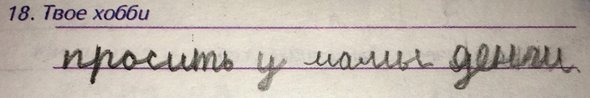 18. Твое хобби
просить у мамы деньги